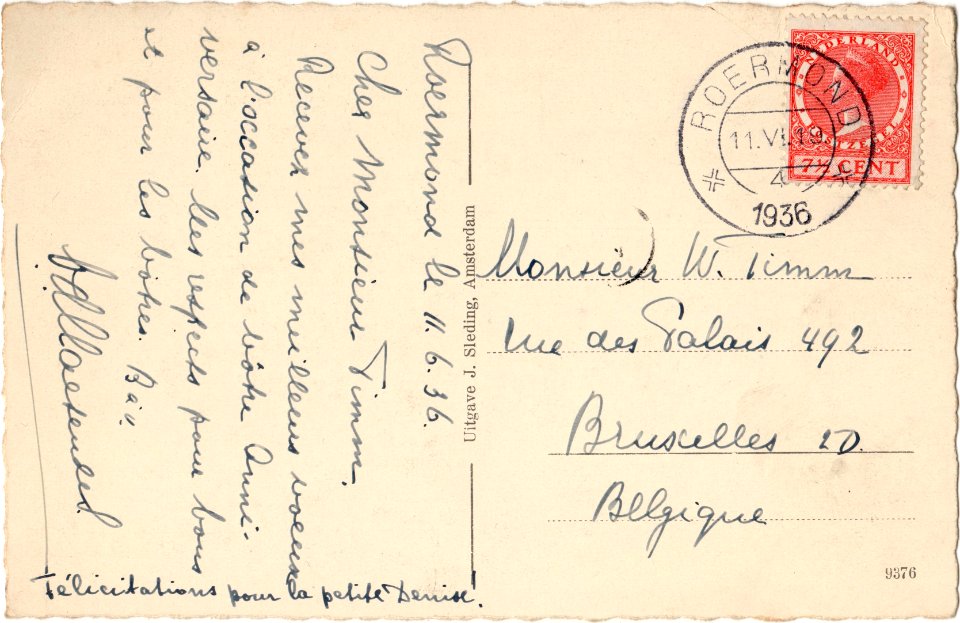 Roermond le 11.6.36.
Cher Monsieur Timm,
Recever mes meilleurs voeux
à l'occasion de vôtre Anni-
versaire. Mes respects pour vous
et pour les vôtres. Bàv.
Félicitations pour la petite Denise!
Uitgave J. Sleding, Amsterdam
ROERMOND
11.VI.19
4
1936
NEDERLAND
POSTZEGEL
7½ CENT
Monsieur W. Timm
rue des Palais 492
Bruxelles 20.
Belgique
9376